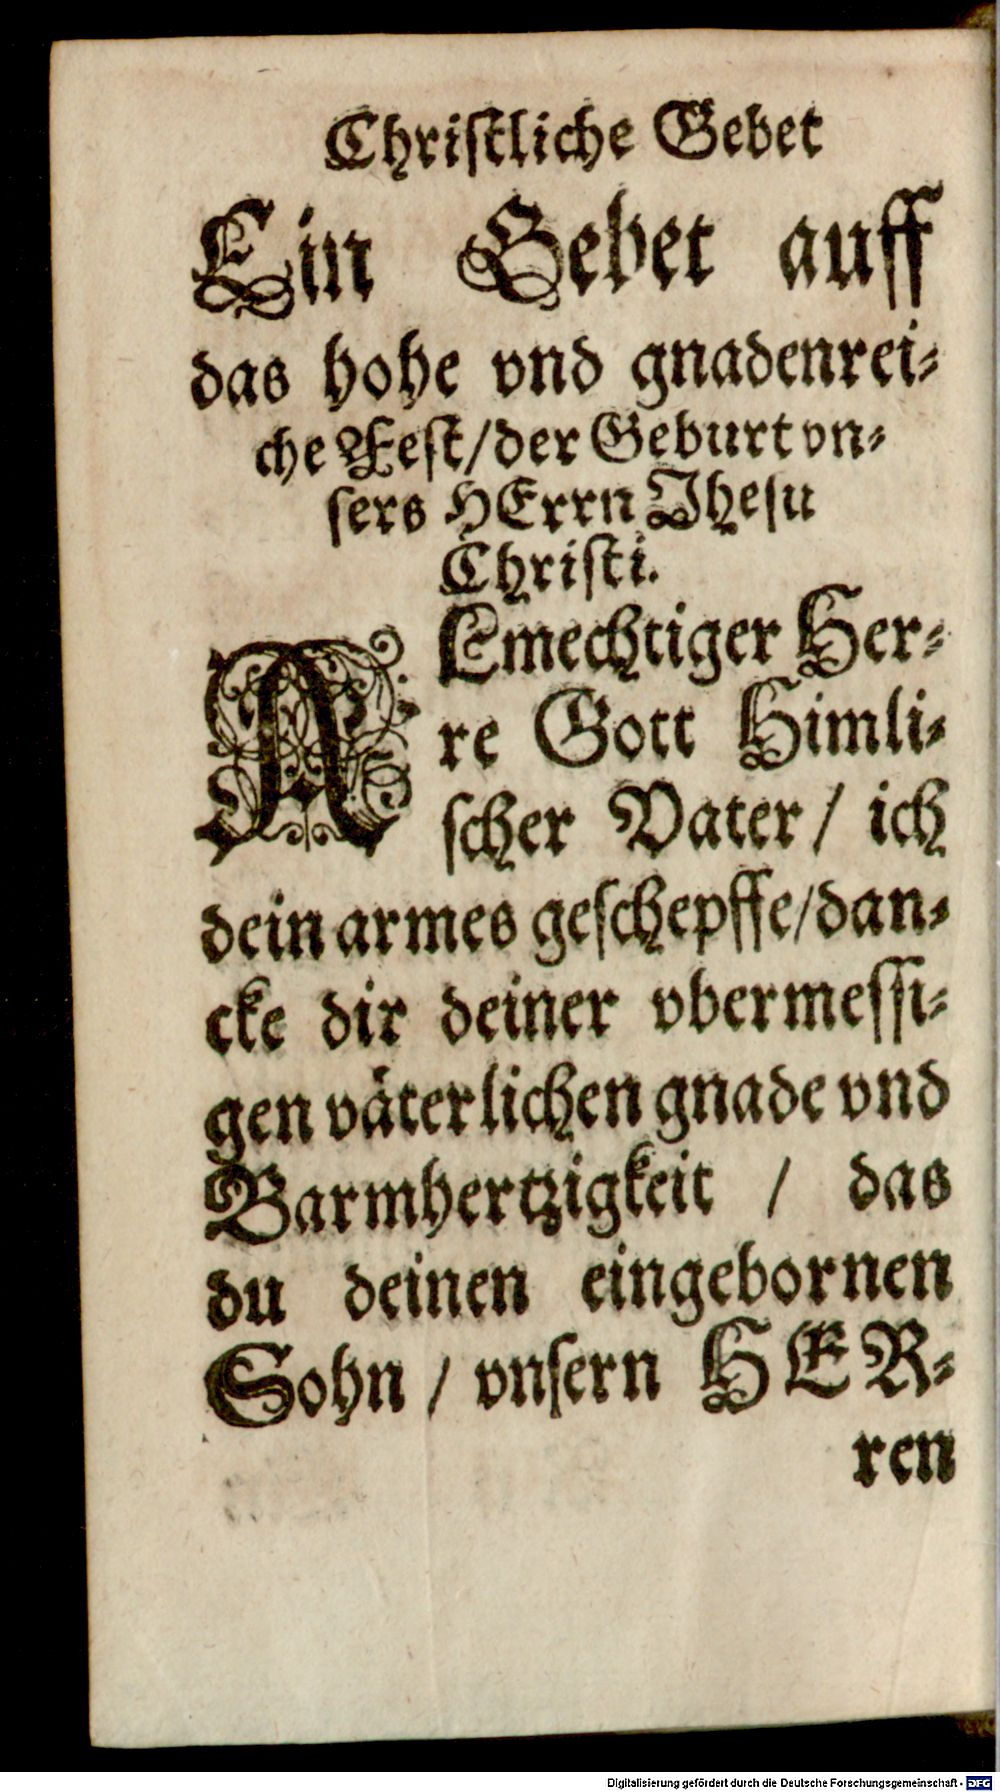 Christliche Gebet
Ein Gebet auff
das hohe vnd gnadenrei-
che Fest/der Geburt vn-
sers HErrn Jhesu
Christi.
ALmechtiger Her-
re Gott Himli-
scher Vater / ich
dein armes geschepffe/dan-
cke dir deiner vbermessi-
gen väterlichen gnade vnd
Barmhertzigkeit / das
du deinen eingebornen
Sohn / vnsern HER-
ren
Digitalisierung gefördert durch die Deutsche Forschungsgemeinschaft - DFG